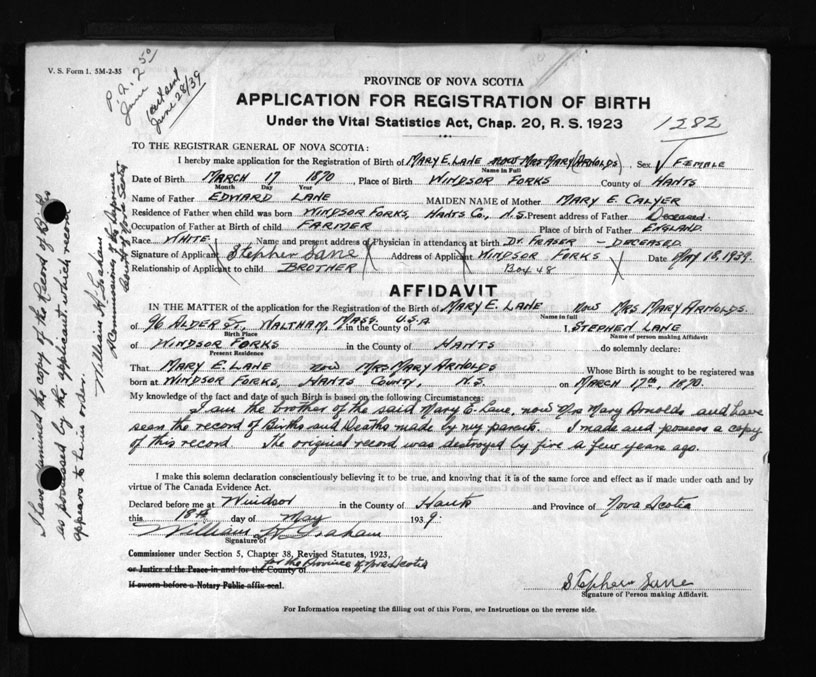 V. S. Form 1. 5M-2-35
P.A. 2 50
June
June 28/39
PROVINCE OF NOVA SCOTIA
APPLICATION FOR REGISTRATION OF BIRTH
Under the Vital Statistics Act, Chap. 20, R. S. 1923
1282
TO THE REGISTRAR GENERAL OF NOVA SCOTIA:
I hereby make application for the Registration of Birth of MARY E. LANE NOW MRS MARY (ARNOLDS). Sex. FEMALE
Name in Full
Date of Birth MARCH 17 1870, Place of Birth WINDSOR FORKS County of HANTS
Month Day Year
Name of Father EDWARD LANE MAIDEN NAME of Mother MARY E. CALYER
Residence of Father when child was born WINDSOR FORKS, HANTS CO., N.S. Present address of Father Deceased.
Occupation of Father at Birth of child FARMER Place of birth of Father ENGLAND.
Race WHITE Name and present address of Physician in attendance at birth DR. FRASER - DECEASED.
Signature of Applicant Stephen Lane Address of Applicant WINDSOR FORKS Date May 18, 1939.
Relationship of Applicant to child BROTHER Box 48
AFFIDAVIT
IN THE MATTER of the application for the Registration of the Birth of MARY E. LANE NOW MRS MARY ARNOLDS.
Name in full
of 96 ALDER ST., WALTHAM, MASS. U.S.A. in the County of I, STEPHEN LANE
Birth Place Name of person making Affidavit
of WINDSOR FORKS in the County of HANTS do solemnly declare:
Present Residence
That MARY E. LANE NOW MRS MARY ARNOLDS Whose Birth is sought to be registered was
born at WINDSOR FORKS, HANTS COUNTY, N.S. on MARCH 17th, 1870.
My knowledge of the fact and date of such Birth is based on the following Circumstances:
I am the brother of the said Mary E. Lane, now Mrs Mary Arnolds and have
seen the record of Births and Deaths made by my parents. I made and possess a copy
of this record. The original record was destroyed by fire a few years ago.
I make this solemn declaration conscientiously believing it to be true, and knowing that it is of the same force and effect as if made under oath and by
virtue of The Canada Evidence Act.
Declared before me at Windsor in the County of Hants and Province of Nova Scotia
this 18th day of May 1939.
William H Graham
Signature of
Commissioner under Section 5, Chapter 38, Revised Statutes, 1923,
or Justice of the Peace in and for the County of for the Province of Nova Scotia
If sworn before a Notary Public affix seal.
Stephen Lane
Signature of Person making Affidavit.
For Information respecting the filling out of this Form, see Instructions on the reverse side.
I have examined the copy of the Record of Births
as produced by the applicant which record
appears to be in order.
William H Graham
A Commissioner of the Supreme
Court of Nova Scotia